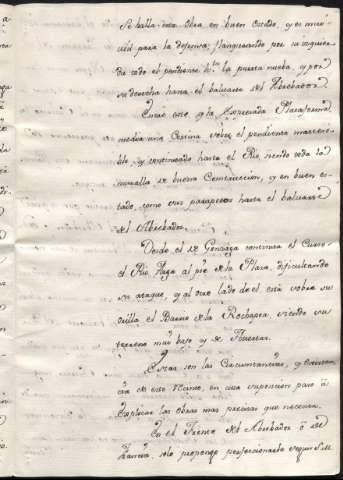 Se halla esta Obra en buen estado, y es mui
util para la defensa, flanqueando por su izquierda
da todo el pendiente h.ta la puerta nueba, y por
su derecha hasta el baluarte del Abrebador.
Entre este y la expresada Plataforma
media una Cortina sobre el pendiente
y continuado hasta el Rio, siendo toda la
muralla de buena Construccion, y en buen es-
tado, como sus parapetos hasta el baluarte
del Abrebador.
Desde el de Gonzaga continua el Curso
el Rio, llega al pie de la Plaza, dificultando
su ataque, y al otro lado de el está sobre su
orilla el Barrio de la Rochapea, siendo su
terreno muy bajo y de Huertas.
Estas son las Circunstancias, y
de este Recinto, en cuia suposicion paso á
explicar las obras mas precisas que necesita.
En el Frente del Abrebador ó de
Francia, solo propongo perfeccionarlo segun